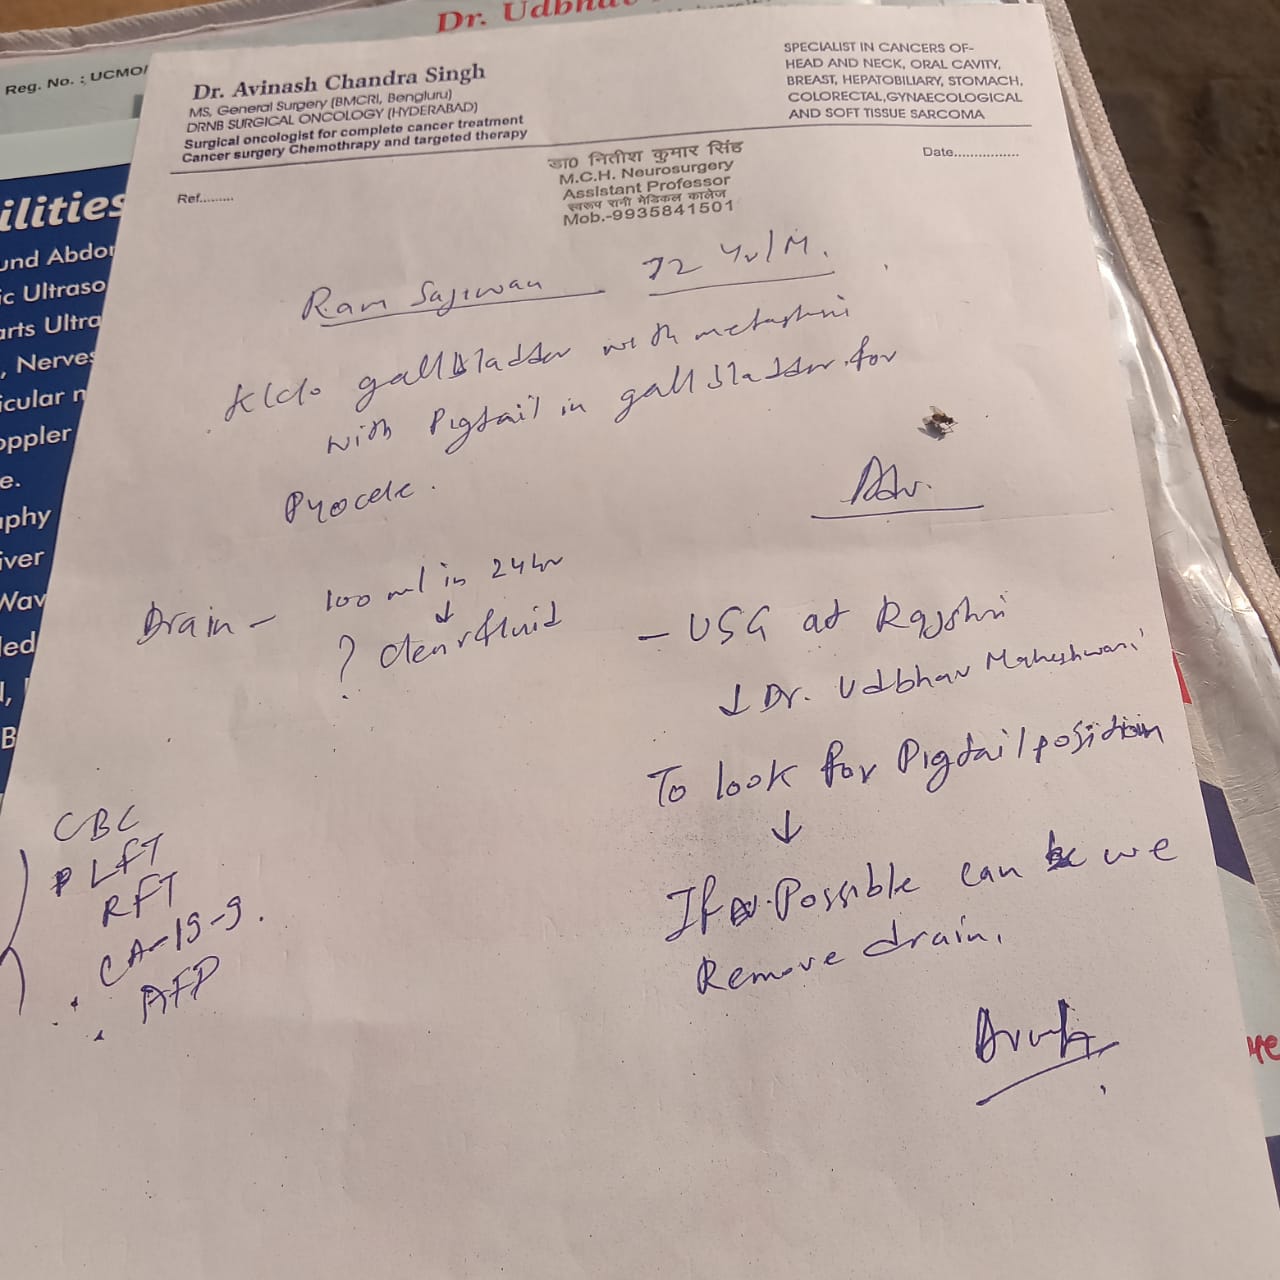 Dr. Udbhav
Reg. No. : UCMO/
Dr. Avinash Chandra Singh
MS, General Surgery (BMCRI, Bengluru)
DRNB SURGICAL ONCOLOGY (HYDERABAD)
Surgical oncologist for complete cancer treatment
Cancer surgery Chemothrapy and targeted therapy
SPECIALIST IN CANCERS OF-
HEAD AND NECK, ORAL CAVITY,
BREAST, HEPATOBILIARY, STOMACH,
COLORECTAL,GYNAECOLOGICAL
AND SOFT TISSUE SARCOMA
Ref.........
डा० नितीश कुमार सिंह
M.C.H. Neurosurgery
Assistant Professor
स्वरूप रानी मेडिकल कालेज
Mob.-9935841501
Date................
Ram Sajiwan 72 Yr/M.
K/c/o gallbladder with metastasis
with Pigtail in gall bladder for
Pyocele.
Drain - 100 ml in 24hr
↓
? clear fluid
CBC
LFT
RFT
CA-19-9.
AFP
Adv.
- USG at Rajshri
↓ Dr. Udbhav Maheshwari
To look for Pigtail position
↓
If Possible can we
Remove drain.
ilities
und Abdo
ic Ultraso
arts Ultra
, Nerves
icular
oppler
e.
phy
iver
Wav
led